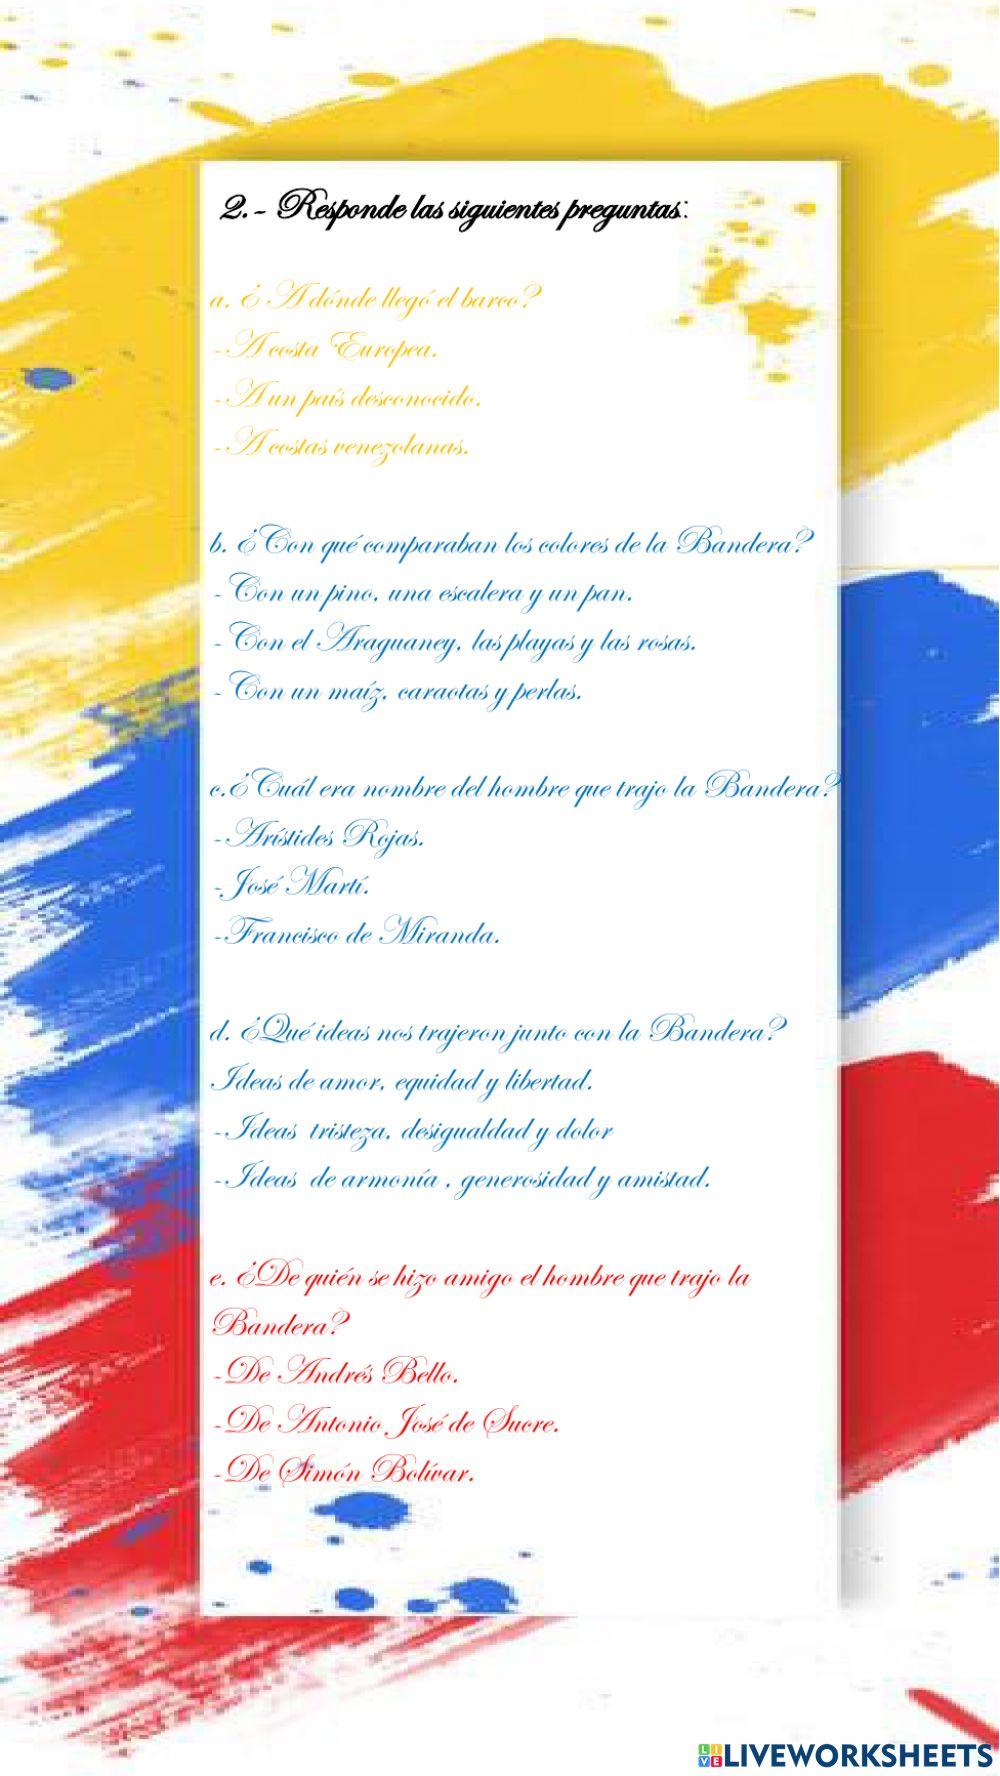 2.- Responde las siguientes preguntas:
a. ¿ A dónde llegó el barco?
-A costa Europea.
-A un país desconocido.
-A costas venezolanas.
b. ¿Con qué comparaban los colores de la Bandera?
- Con un pino, una escalera y un pan.
- Con el Araguaney, las playas y las rosas.
- Con un maíz, caraotas y perlas.
c.¿Cuál era nombre del hombre que trajo la Bandera?
-Arístides Rojas.
-José Martí.
-Francisco de Miranda.
d. ¿Qué ideas nos trajeron junto con la Bandera?
Ideas de amor, equidad y libertad.
-Ideas tristeza, desigualdad y dolor
-Ideas de armonía , generosidad y amistad.
e. ¿De quién se hizo amigo el hombre que trajo la
Bandera?
-De Andrés Bello.
-De Antonio José de Sucre.
-De Simón Bolívar.
LIVEWORKSHEETS